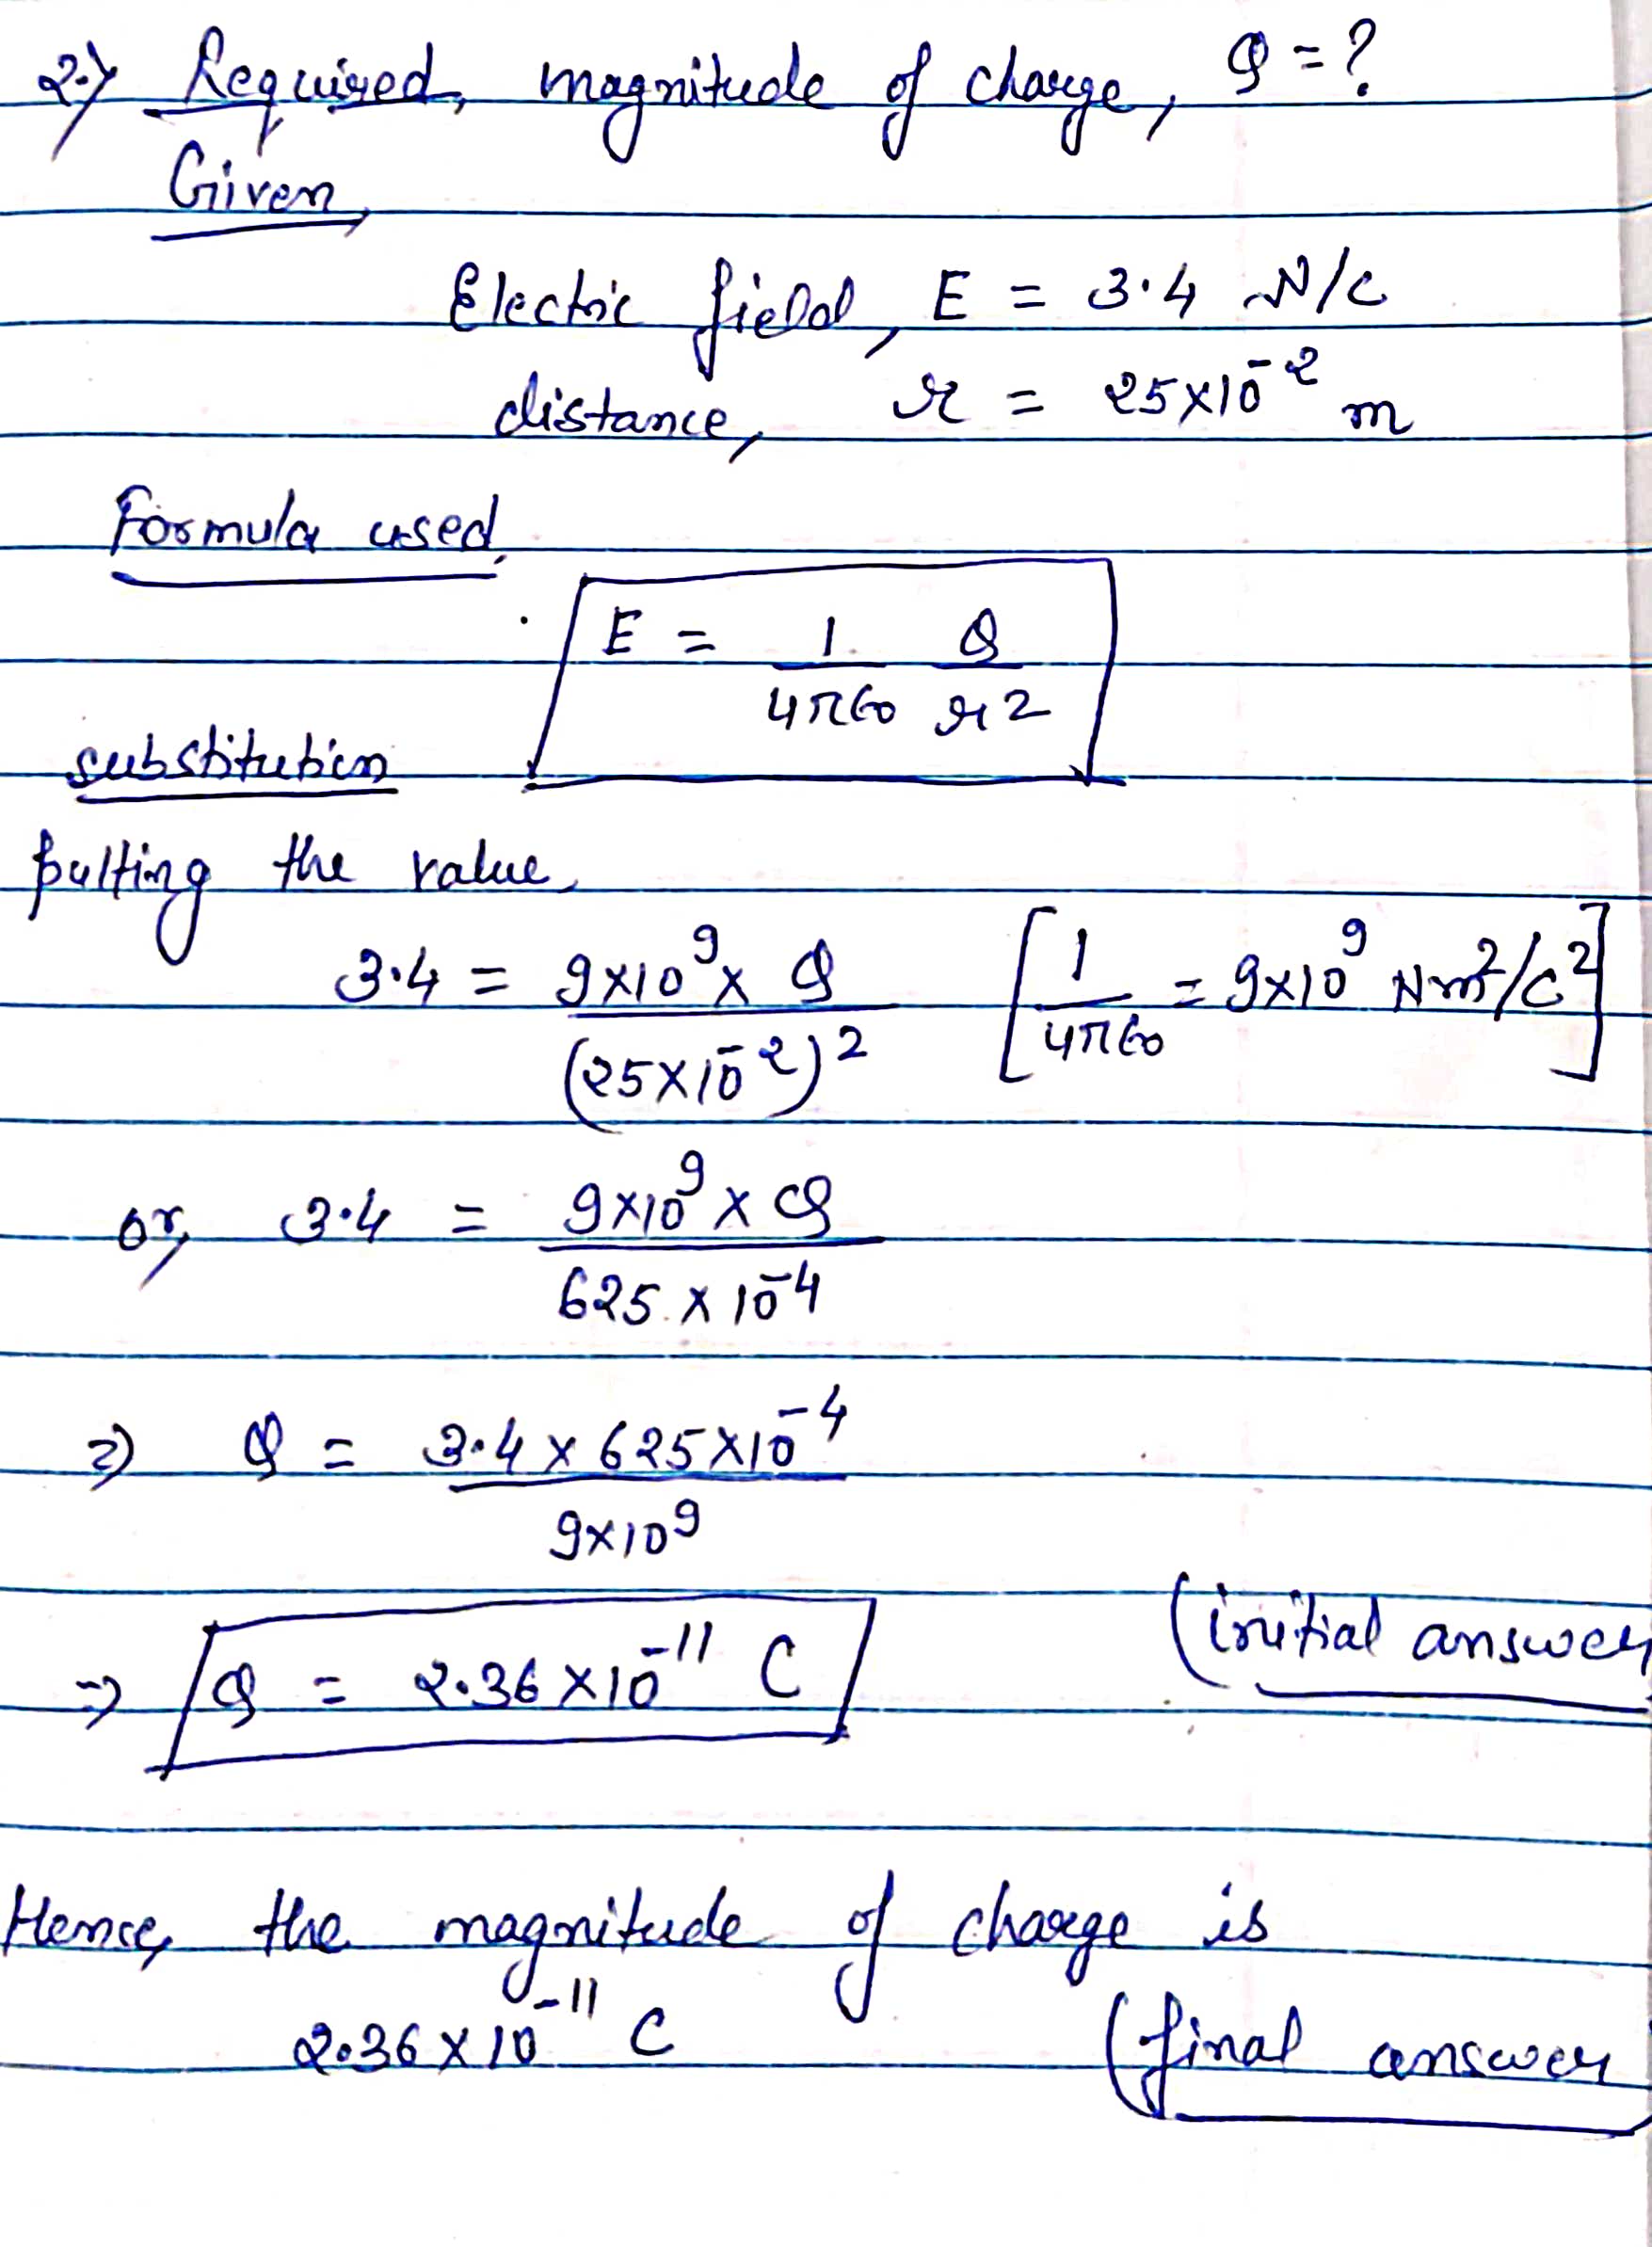 2.) Required, magnitude of charge, Q = ?
Given,
Electric field, E = 3.4 N/C
distance, r = 25×10⁻² m
Formula used,
E = 1/4π∈₀ Q/r²
substitution
putting the value,
3.4 = 9×10⁹ × Q/(25×10⁻²)² [1/4π∈₀ = 9×10⁹ Nm²/C²]
or, 3.4 = 9×10⁹ × Q/625 × 10⁻⁴
⇒ Q = 3.4 × 625×10⁻⁴/9×10⁹
⇒ Q = 2.36 × 10⁻¹¹ C (initial answer
Hence, the magnitude of charge is
2.36 × 10⁻¹¹ C (final answer)